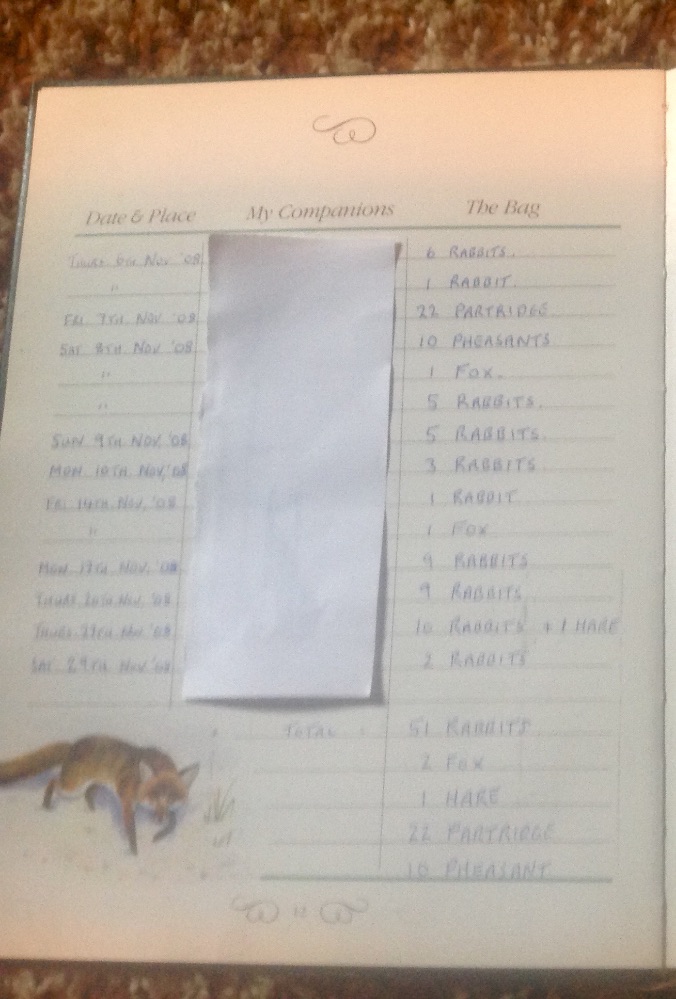 Date & Place My Companions The Bag
THURS 6TH NOV '08 6 RABBITS.
" 1 RABBIT.
FRI 7TH NOV '08 22 PARTRIDGE
SAT 8TH NOV '08 10 PHEASANTS
" 1 FOX.
" 5 RABBITS.
SUN 9TH NOV, '08 5 RABBITS.
MON 10TH NOV, '08 3 RABBITS
FRI 14TH NOV, '08 1 RABBIT
" 1 FOX
MON 17TH NOV, '08 9 RABBITS
THURS 20TH NOV, '08 9 RABBITS
THURS 27TH NOV '08 10 RABBITS + 1 HARE
SAT 29TH NOV '08 2 RABBITS
TOTAL : 51 RABBITS
2 FOX
1 HARE
22 PARTRIDGE
10 PHEASANT